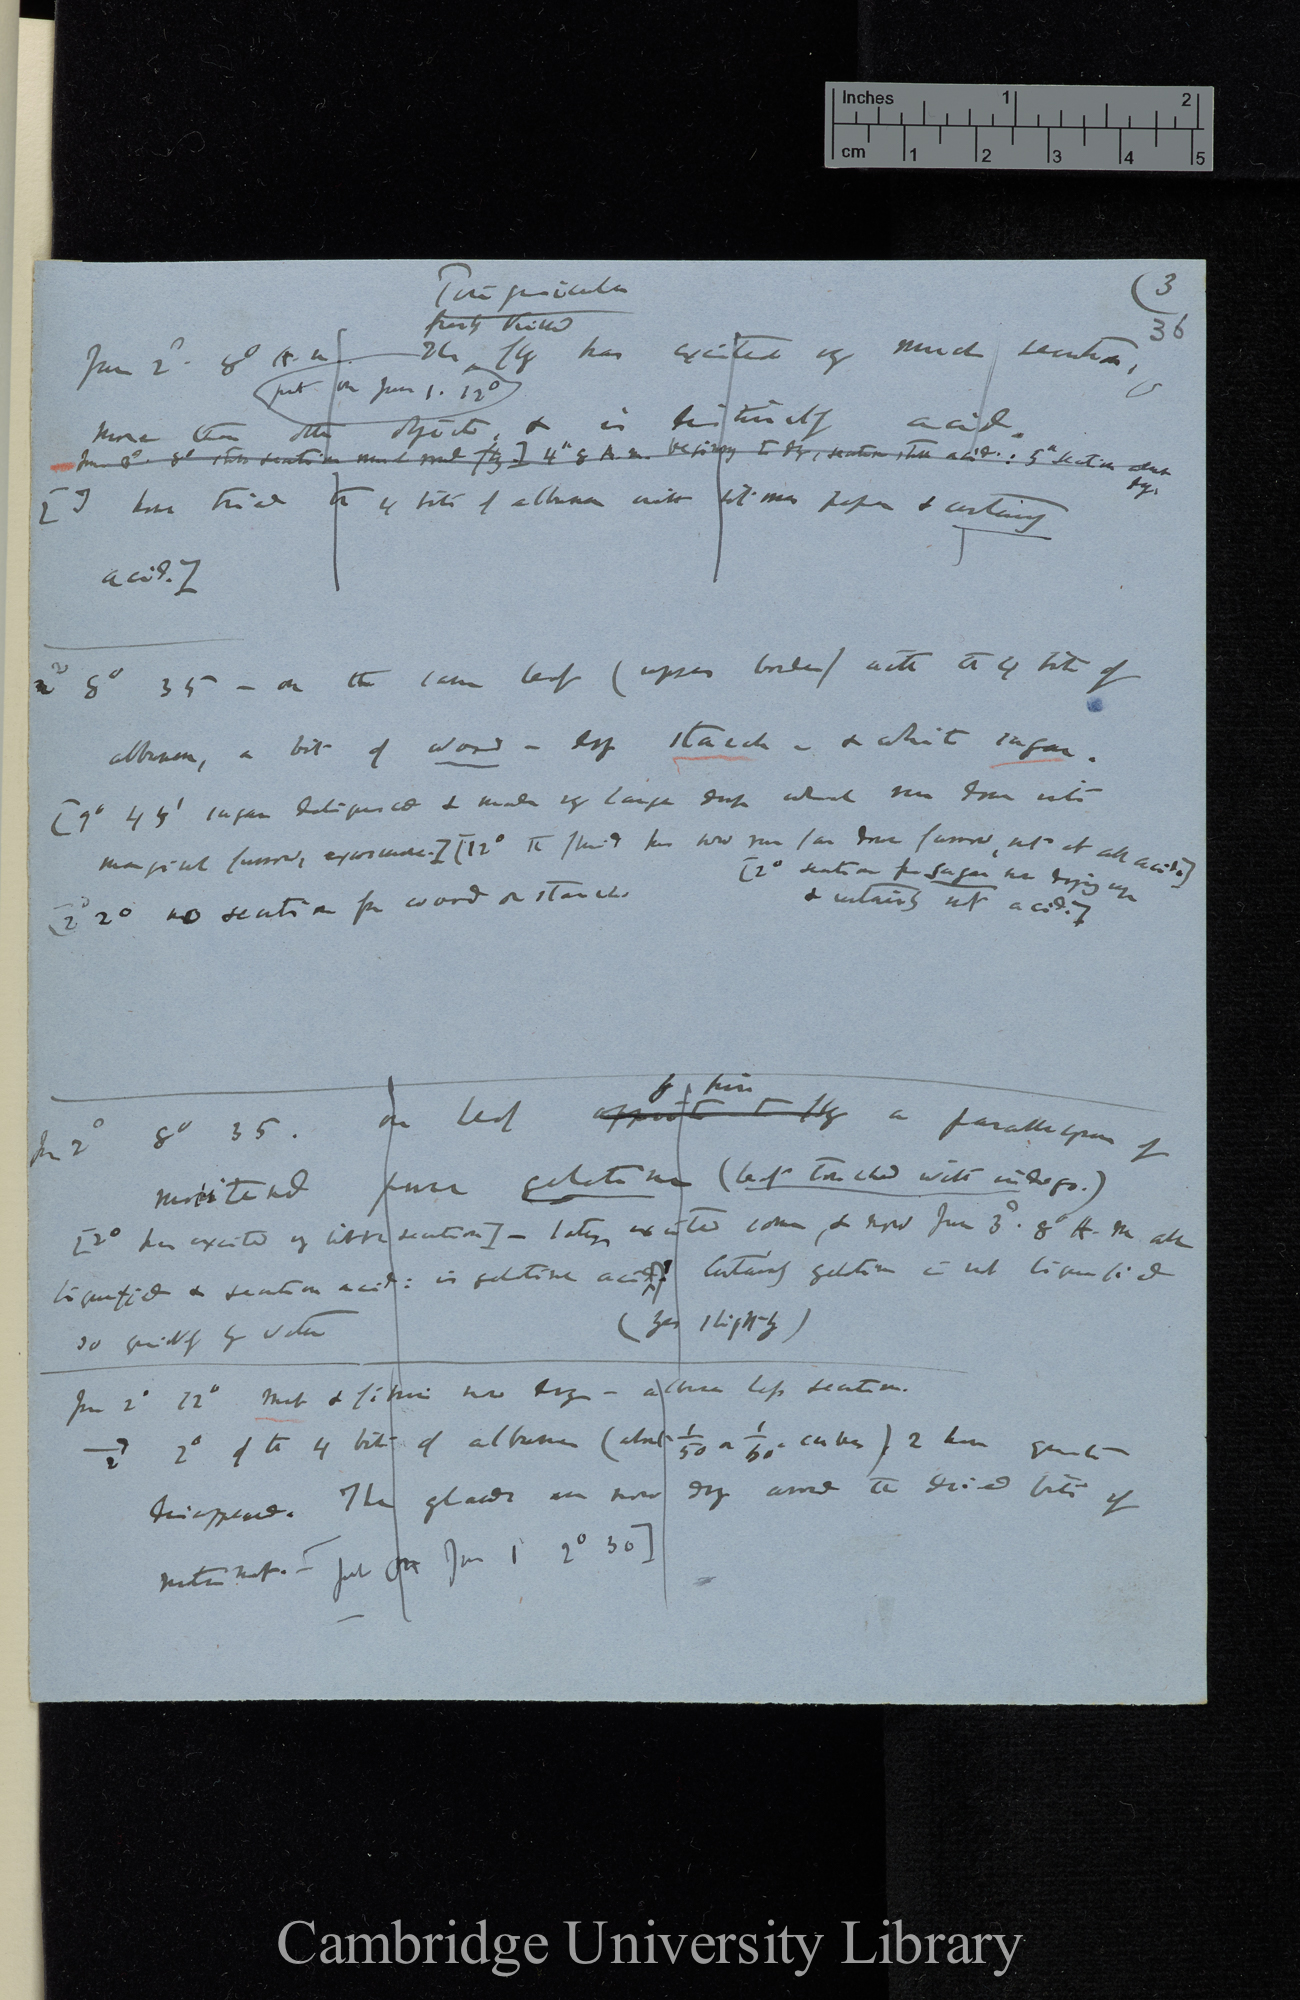 Inches 1 2
cm 1 2 3 4 5
(3
Pinguicula
36
freshly killed
June 2° 8° A.m. The fly has excited very much secretion,
(put on June 1. 12°)
more than other objects, & is distinctly acid.
8° still secretion round fly] 4th 8 A.m. beginning to dry, secretion still acid: 5th secretion
dry.
[I have tried the 4 bits of albumen with litmus paper & certainly
acid.]
2° 8° 35 — on the same leaf (upper border) with the 4 bits of
albumen, a bit of wood — dry starch — & white sugar.
[9° 45' sugar deliquesced & made very large drop which run down into
marginal furrow, [12° The fluid has now run far down furrow, not at all acid.]
[2° secretion from sugar now drying up
[2° 2° no secretion from wood or starch
& certainly not acid.]
June 2° 8° 35. on leaf opposite to fly a parallelogram of
moistened pure gelatine (leaf touched with indigo.)
[2° has excited very little secretion] — later, excited some, & now June 3° 8° A.m all
liquefied & secretion acid: is gelatine acid? Certainly gelatine is not liquefied
so quickly by water (yes slightly)
June 2° 12° meat & fibrin now dry — albumen less secretion.
2° of the 4 bits of albumen (about 1/50 or 1/60 cubes), 2 have quite
disappeared. The glands are now dry around the dried bits of
meat. — [put on June 1 2° 30]
Cambridge University Library